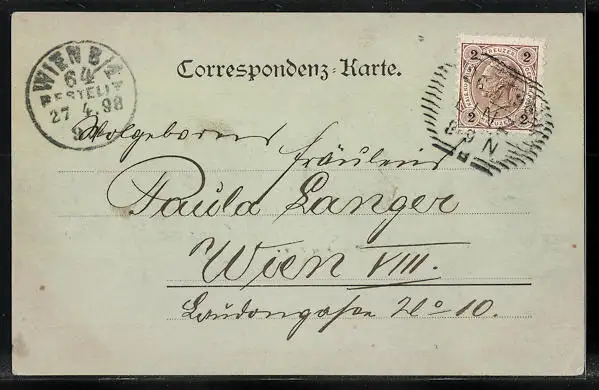 WIEN 8/1
64
BESTELLT
27 4 98
Correspondenz-Karte.
2 KREUZER 2
2 2
Wolgeborens
Fräulein
Paula Langer
Wien VIII.
Laudongasse No 10.